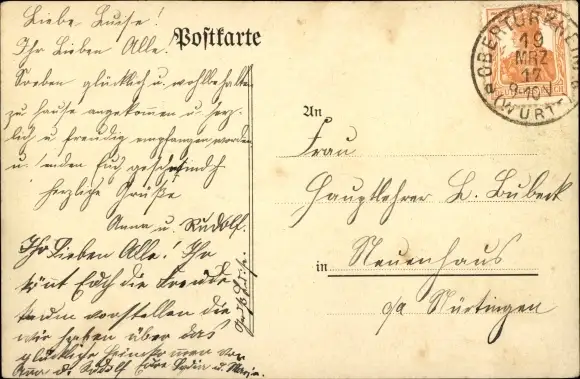 Liebe Luise!
Ihr Lieben Alle!
Soeben glücklich u. wohlbehalten
zu hause angekommen u. herz-
lich u. freudig empfangen worden
u. senden Euch
herzliche Grüße
Anna u. Rudolf.
Ihr Lieben Alle! Ihr
könt Euch die Freude
kaum vorstellen die
wir haben über das
glückliche heimkommen von
Anna u. Rudolf Eure u. Maria.
Postkarte
OBERTÜRKHEIM
19
MRZ
17
9-10V
(WÜRTT.)
An
Frau
Hauptlehrer L. Lubeck
in Neuenhaus
o/a Nürtingen